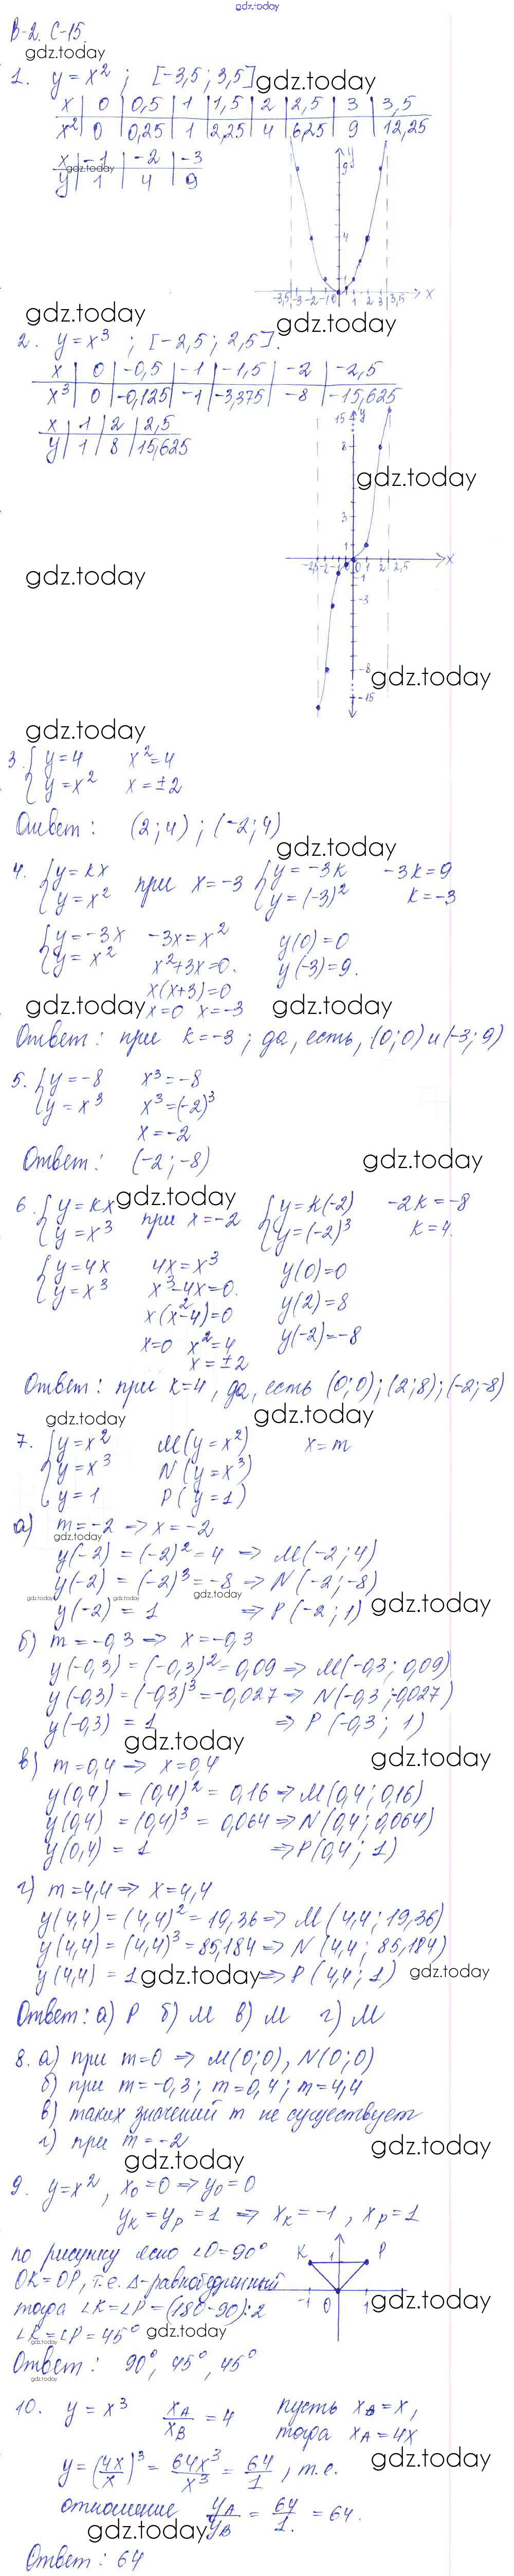 gdz.today
В-2. С-15.
gdz.today
1. y=x²; [-3,5; 3,5] gdz.today
x | 0 | 0,5 | 1 | 1,5 | 2 | 2,5 | 3 | 3,5
x² | 0 | 0,25 | 1 | 2,25 | 4 | 6,25 | 9 | 12,25
x | -1 | -2 | -3
gdz.today
y | 1 | 4 | 9
y
9
4
1
-3,5 -3 -2 -1 0 1 2 3 3,5 x
gdz.today
gdz.today
2. y=x³; [-2,5; 2,5].
x | 0 | -0,5 | -1 | -1,5 | -2 | -2,5
x³ | 0 | -0,125 | -1 | -3,375 | -8 | -15,625
x | 1 | 2 | 2,5
y | 1 | 8 | 15,625
15 y
8
gdz.today
3
1
-2,5 -2 -1 0 1 2 2,5 x
gdz.today
-1
-3
-8
gdz.today
-15
gdz.today
3. { y=4 x²=4
y=x² x=±2
Ответ: (2;4); (-2;4)
gdz.today
4. { y=kx при x=-3 { y=-3k -3k=9
y=x² y=(-3)² k=-3
{ y=-3x -3x=x² y(0)=0
y=x² x²+3x=0. y(-3)=9.
x(x+3)=0
gdz.today x=0 x=-3 gdz.today
Ответ: при k=-3; да, есть, (0;0) и (-3;9)
5. { y=-8 x³=-8
y=x³ x³=(-2)³
x=-2
Ответ: (-2;-8) gdz.today
6. { y=kx gdz.today при x=-2 { y=k(-2) -2k=-8
y=x³ y=(-2)³ k=4.
{ y=4x 4x=x³ y(0)=0
y=x³ x³-4x=0. y(2)=8
x(x²-4)=0 y(-2)=-8
x=0 x²=4
x=±2
Ответ: при k=4, да, есть (0;0); (2;8); (-2;-8)
gdz.today gdz.today
7. { y=x² M(y=x²) x=m
y=x³ N(y=x³)
y=1 P(y=1)
а) m=-2 => x=-2
gdz.today
y(-2)=(-2)²=4 => M(-2;4)
y(-2)=(-2)³=-8 => N(-2;-8)
gdz.today gdz.today gdz.today
y(-2)=1 => P(-2;1) gdz.today
б) m=-0,3 => x=-0,3
y(-0,3)=(-0,3)²=0,09 => M(-0,3; 0,09)
y(-0,3)=(-0,3)³=-0,027 => N(-0,3;-0,027)
y(-0,3)=1 => P(-0,3; 1)
gdz.today
в) m=0,4 => x=0,4 gdz.today
y(0,4)=(0,4)²=0,16 => M(0,4; 0,16)
y(0,4)=(0,4)³=0,064 => N(0,4; 0,064)
y(0,4)=1 => P(0,4; 1)
г) m=4,4 => x=4,4
y(4,4)=(4,4)²=19,36 => M(4,4; 19,36)
y(4,4)=(4,4)³=85,184 => N(4,4; 85,184)
y(4,4)=1 gdz.today => P(4,4; 1) gdz.today
Ответ: а) P б) M в) M г) M
8. а) при m=0 => M(0;0), N(0;0)
б) при m=-0,3; m=0,4; m=4,4
в) таких значений m не существует
г) при m=-2 gdz.today
gdz.today
9. y=x², x₀=0 => y₀=0
yK=yP=1 => xK=-1, xP=1
по рисунку ясно ∠O=90°
OK=OP, т.е. Δ-равнобедренный
тогда ∠K=∠P=(180-90):2
∠K=∠P=45° gdz.today
gdz.today
K 1 P
-1 0 1
gdz.today
Ответ: 90°, 45°, 45°
gdz.today
10. y=x³ xA/xB=4 пусть xB=x,
тогда xA=4x
y=(4x/x)³=64x³/x³=64/1, т.е. gdz.today
отношение yA/yB=64/1.=64.
gdz.today
Ответ: 64